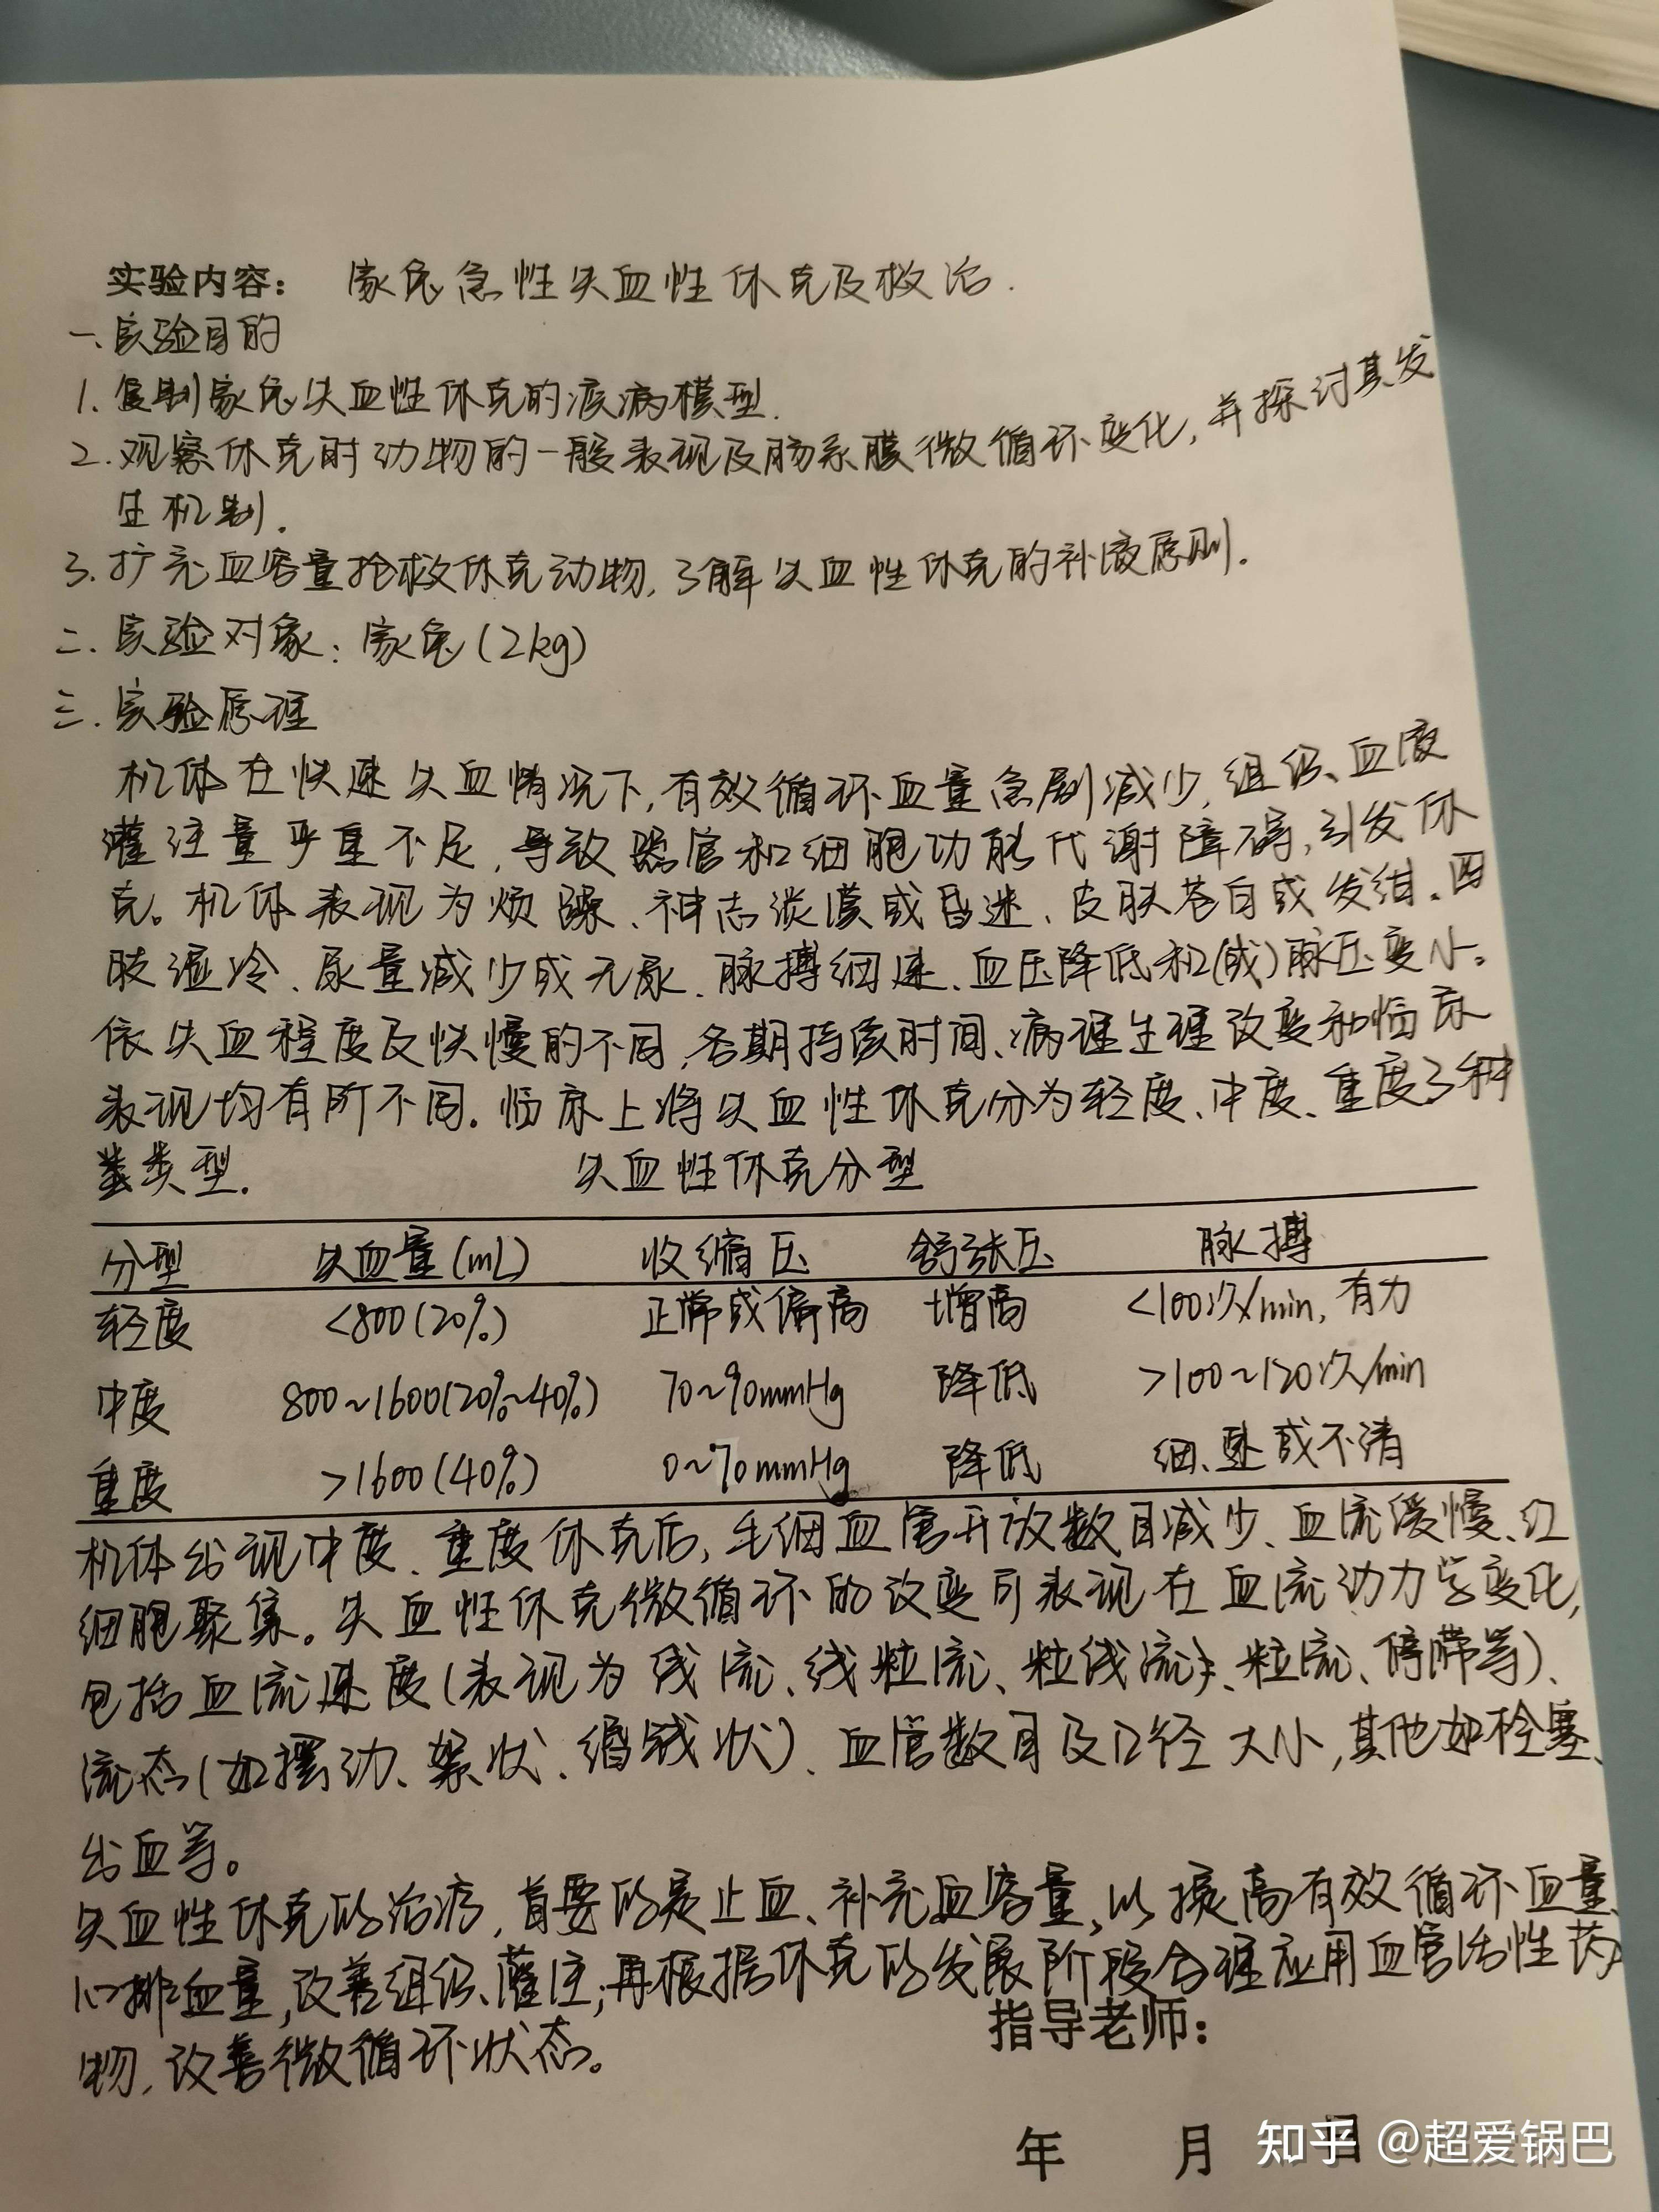 实验内容： 家兔急性失血性休克及救治.
一、实验目的
1. 复制家兔失血性休克的疾病模型.
2. 观察休克时动物的一般表现及肠系膜微循环变化, 并探讨其发
生机制.
3. 扩充血容量抢救休克动物, 了解失血性休克的补液原则.
二. 实验对象: 家兔(2kg)
三. 实验原理
机体在快速失血情况下, 有效循环血量急剧减少, 组织、血液
灌注量严重不足, 导致器官和细胞功能代谢障碍, 引发休
克。机体表现为烦躁、神志淡漠或昏迷、皮肤苍白或发绀、四
肢湿冷、尿量减少或无尿、脉搏细速、血压降低和(或)脉压变小。
依失血程度及快慢的不同, 各期持续时间、病理生理改变和临床
表现均有所不同. 临床上将失血性休克分为轻度、中度、重度3种
类型. 失血性休克分型
分型 失血量(mL) 收缩压 舒张压 脉搏
轻度 <800(20%) 正常或偏高 增高 <100次/min, 有力
中度 800~1600(20%~40%) 70~90mmHg 降低 >100~120次/min
重度 >1600(40%) 0~70mmHg 降低 细、速或不清
机体出现中度、重度休克后, 毛细血管开放数目减少、血流缓慢、红
细胞聚集。失血性休克微循环的改变可表现在血流动力学变化,
包括血流速度(表现为线流、线粒流、粒线流、粒流、停滞等)、
流态(如摆动、絮状、缗钱状)、血管数目及口径大小, 其他如栓塞、
出血等。
失血性休克的治疗, 首要的是止血、补充血容量, 以提高有效循环血量、
心排血量, 改善组织灌注; 再根据休克的发展阶段合理应用血管活性药
物, 改善微循环状态。
指导老师：
年 月 日
知乎 @超爱锅巴